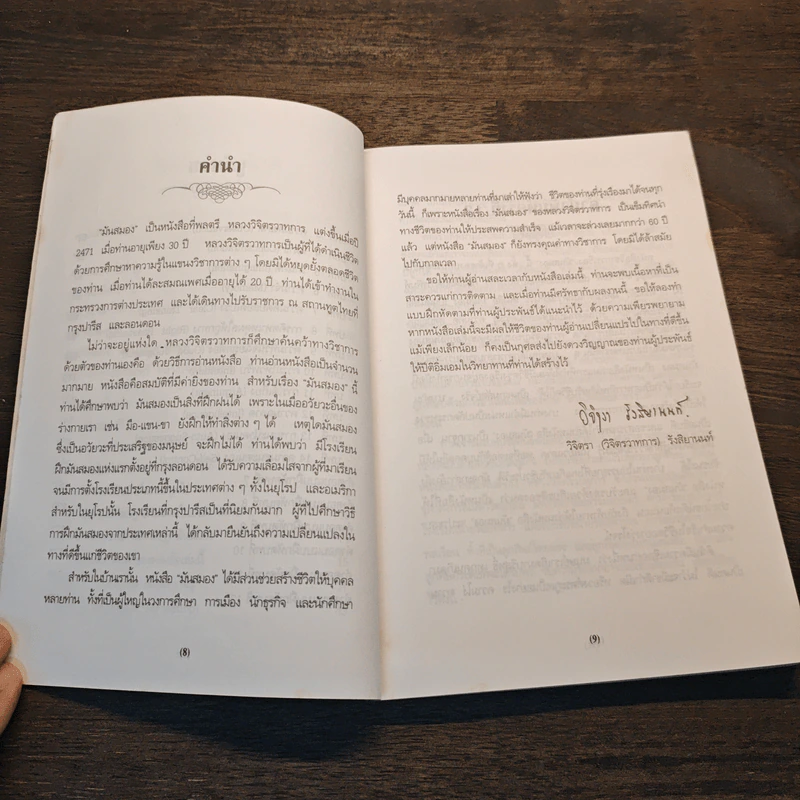 คำนำ
"มันสมอง" เป็นหนังสือที่พลตรี หลวงวิจิตรวาทการ แต่งขึ้นเมื่อปี
2471 เมื่อท่านอายุเพียง 30 ปี หลวงวิจิตรวาทการเป็นผู้ที่ได้ดำเนินชีวิต
ด้วยการศึกษาหาความรู้ในแขนงวิชาการต่าง ๆ โดยมิได้หยุดยั้งตลอดชีวิต
ของท่าน เมื่อท่านได้ละสมณเพศเมื่ออายุได้ 20 ปี ท่านได้เข้าทำงานใน
กระทรวงการต่างประเทศ และได้เดินทางไปรับราชการ ณ สถานทูตไทยที่
กรุงปารีส และลอนดอน
ไม่ว่าจะอยู่แห่งใด หลวงวิจิตรวาทการก็ศึกษาค้นคว้าทางวิชาการ
ด้วยตัวของท่านเองคือ ด้วยวิธีการอ่านหนังสือ ท่านอ่านหนังสือเป็นจำนวน
มากมาย หนังสือคือสมบัติที่มีค่ายิ่งของท่าน สำหรับเรื่อง "มันสมอง" นี้
ท่านได้ศึกษาพบว่า มันสมองเป็นสิ่งที่ฝึกฝนได้ เพราะในเมื่ออวัยวะอื่นของ
ร่างกายเรา เช่น มือ-แขน-ขา ยังฝึกให้ทำสิ่งต่าง ๆ ได้ เหตุใดมันสมอง
ซึ่งเป็นอวัยวะที่ประเสริฐของมนุษย์ จะฝึกไม่ได้ ท่านได้พบว่า มีโรงเรียน
ฝึกมันสมองแห่งแรกตั้งอยู่ที่กรุงลอนดอน ได้รับความเลื่อมใสจากผู้ที่มาเรียน
จนมีการตั้งโรงเรียนประเภทนี้ขึ้นในประเทศต่าง ๆ ทั้งในยุโรป และอเมริกา
สำหรับในยุโรปนั้น โรงเรียนที่กรุงปารีสเป็นที่นิยมกันมาก ผู้ที่ไปศึกษาวิธี
การฝึกมันสมองจากประเทศเหล่านี้ ได้กลับมายืนยันถึงความเปลี่ยนแปลงใน
ทางที่ดีขึ้นแก่ชีวิตของเขา
สำหรับในบ้านเรานั้น หนังสือ "มันสมอง" ได้มีส่วนช่วยสร้างชีวิตให้บุคคล
หลายท่าน ทั้งที่เป็นผู้ใหญ่ในวงการศึกษา การเมือง นักธุรกิจ และนักศึกษา
(8)
มีบุคคลมากมายหลายท่านที่มาเล่าให้ฟังว่า ชีวิตของท่านที่รุ่งเรืองมาได้จนทุก
วันนี้ ก็เพราะหนังสือเรื่อง "มันสมอง" ของหลวงวิจิตรวาทการ เป็นเข็มทิศนำ
ทางชีวิตของท่านให้ประสพความสำเร็จ แม้เวลาจะล่วงเลยมากกว่า 60 ปี
แล้ว แต่หนังสือ "มันสมอง" ก็ยังทรงคุณค่าทางวิชาการ โดยมิได้ล้าสมัย
ไปกับกาลเวลา
ขอให้ท่านผู้อ่านสละเวลากับหนังสือเล่มนี้ ท่านจะพบเนื้อหาที่เป็น
สาระควรแก่การติดตาม และเมื่อท่านมีศรัทธากับผลงานนี้ ขอให้ลองทำ
แบบฝึกหัดตามที่ท่านผู้ประพันธ์ได้แนะนำไว้ ด้วยความเพียรพยายาม
หากหนังสือเล่มนี้จะมีผลให้ชีวิตของท่านผู้อ่านเปลี่ยนแปรไปในทางที่ดีขึ้น
แม้เพียงเล็กน้อย ก็คงเป็นกุศลส่งไปยังดวงวิญญาณของท่านผู้ประพันธ์
ให้ปีติอิ่มเอมในวิทยาทานที่ท่านได้สร้างไว้
วิจิตรา รังสิยานนท์
วิจิตรา (วิจิตรวาทการ) รังสิยานนท์
(9)